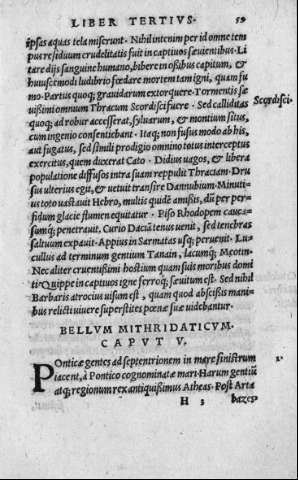 LIBER TERTIVS. 59
ipsas aquas tela miserunt. Nihil interim per id omne tem
pus residuum crudelitatis fuit in captiuos sæuientibus. Li
tare dijs sanguine humano, bibere in ossibus capitum, &
huiuscemodi ludibrio fœdare mortem tam igni, quam fu
mo. Partus quoq; grauidarum extorquere. Tormentis sæ
uissimi omnium Thracum Scordisci fuere. Sed calliditas Scordisci.
quoq; ad robur accesserat, syluarum, & montium situs,
cum ingenio consentiebant. Itaq; non fusus modo ab his,
aut fugatus, sed simili prodigio omnino totus interceptus
exercitus, quem duxerat Cato. Didius uagos, & libera
populatione diffusos intra suam reppulit Thraciam. Dru
sus ulterius egit, & uetuit transire Dannubium. Minuti
us toto uastauit Hebro, multis quidē amissis, dū per per-
fidum glacie flumen equitatur. Piso Rhodopem cauca-
sumq; penetrauit. Curio Daciā tenus uenit, sed tenebras
saltuum expauit. Appius in Sarmatas usq; peruenit. Lu-
cullus ad terminum gentium Tanain, lacumq; Mæotin.
Nec aliter cruentissimi hostium quam suis moribus domi
ti. Quippe in captiuos igne ferroq; sæuitum est. Sed nihil
Barbaris atrocius uisum est, quam quod abscissis mani-
bus relicti uiuere superstites pœnæ suæ iubebantur.
BELLVM MITHRIDATICVM.
CAPVT V.
Ponticæ gentes ad septentrionem in mare sinistrum
iacent, à Pontico cognominatæ mari. Harum gentiū
atq; regionum rex antiquissimus Atheas. Post Arta
H 3 bazes